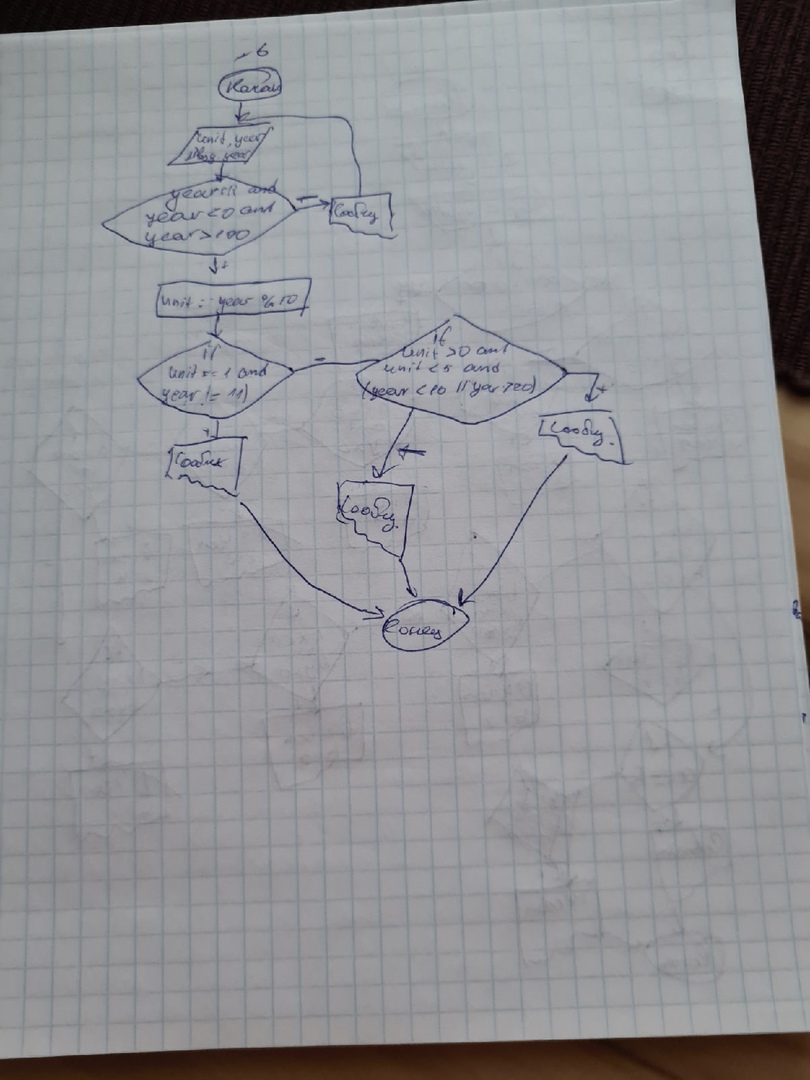 6
Начал
unit, year
year
year and
year < 0 and
year > 100
Сообщ.
+
unit := year % 10
if
unit == 1 and
year != 11)
-
if
unit > 0 and
unit < 5 and
(year < 10 || year > 20)
+
Сообщ.
+
Сообщ
Сообщ.
Конец